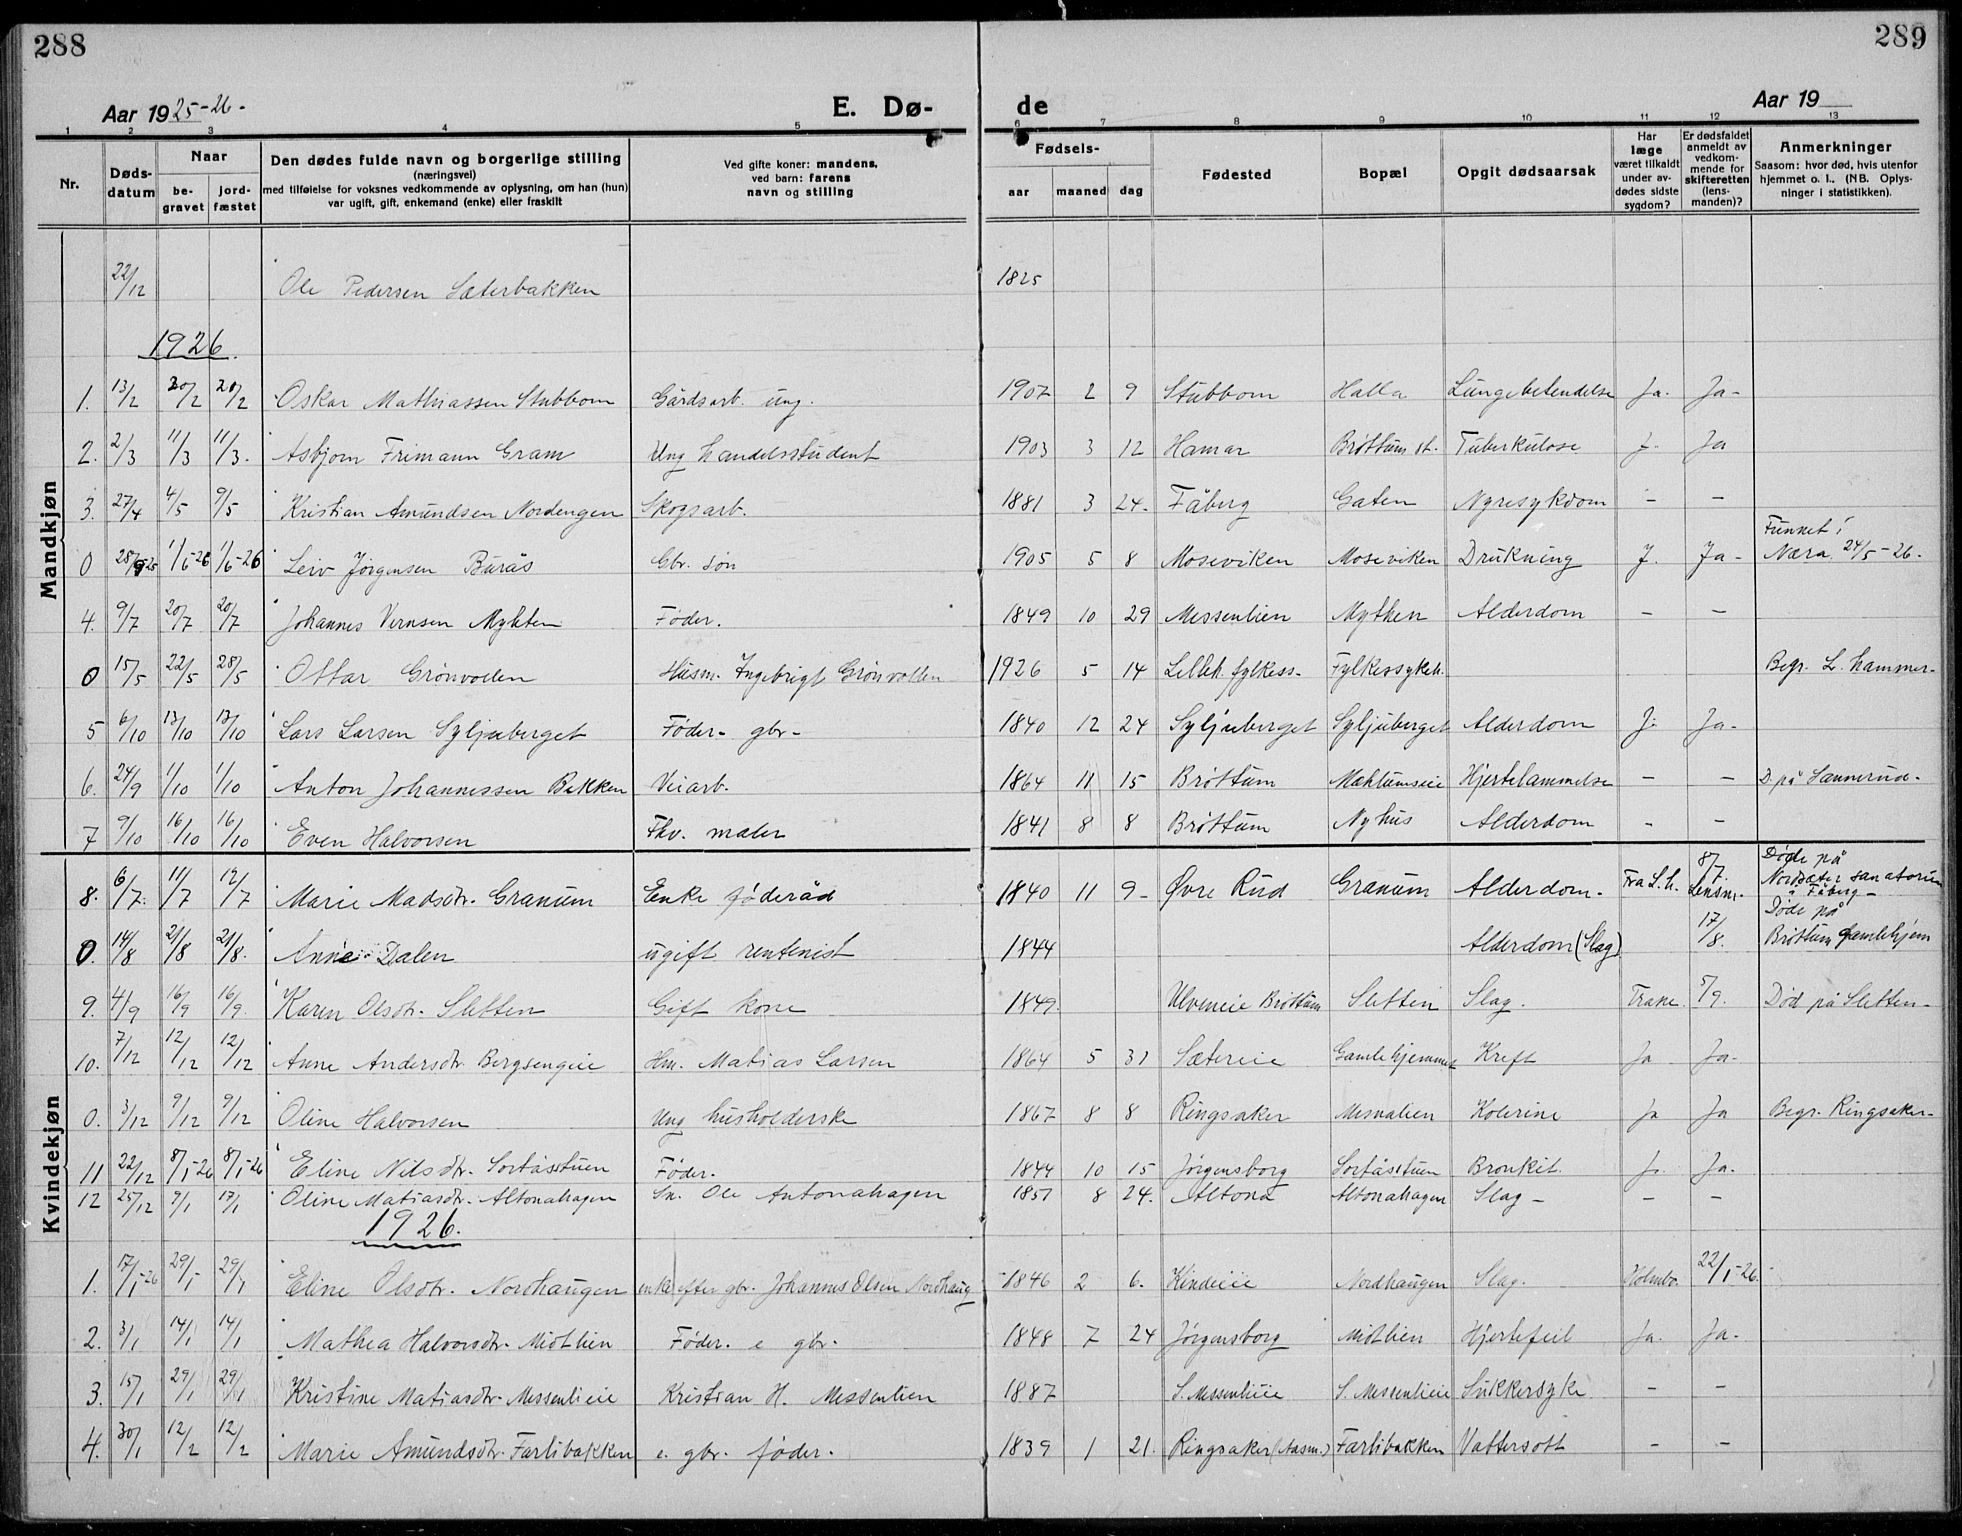 288
289
Aar 1925-26-
E. Dø-
de
Aar 19
1 2 3 4 5 6 7 8 9 10 11 12 13
Nr.
Døds-datum
Naar
be-gravet
jord-fæstet
Den dødes fulde navn og borgerlige stilling
(næringsvei)
med tilføielse for voksnes vedkommende av oplysning, om han (hun)
var ugift, gift, enkemand (enke) eller fraskilt
Ved gifte koner: mandens,
ved barn: farens
navn og stilling
Fødsels-
aar maaned dag
Fødested
Bopæl
Opgit dødsaarsak
Har læge været tilkaldt under av-dødes sidste sygdom?
Er dødsfaldet anmeldt av vedkom-mende for skifteretten (lens-manden)?
Anmerkninger
Saasom: hvor død, hvis utenfor
hjemmet o. l. (NB. Oplys-
ninger i statistikken).
Mandkjøn
22/12 Ole Pedersen Sæterbakken 1825
1926.
1. 13/2 20/2 20/2 Oskar Mathiassen Stubbom Gårdsarb. ung. 1907 2 9 Stubbom Halla Lungebetendelse Ja. Ja-
2. 2/3 11/3 11/3. Asbjorn Frimann Gram Ung handelsstudent 1903 3 12 Hamar Brøttum st. Tuberkulose J. Ja
3. 27/4 4/5 9/5 Kristian Amundsen Nordengen Skogsarb. 1881 3 24. Fåberg Gaten Nyresykdom - -
Funnet i
0 28/9 25 1/6-26 1/6-26 Leiv Jörgensen Burås Gbr. søn 1905 5 8 Moseviken Moseviken Drukning J. Ja- Næra 24/5-26.
4. 9/7 20/7 20/7 Johannes Vernsen Mykten Føder. 1849 10 29 Messenlien Mythen Alderdom - -
0 15/5 22/5 28/5 Ottar Grönvolen Husm. Ingebrigt Grönvollen 1926 5 14 Lilleh. fylkess. Fylkessykeh. Begr. L. hammer-
5 6/10 13/10 13/10 Lars Larsen Syljuberget Føder- gbr- 1840 12 24 Syljuberget Syljuberget Alderdom J. Ja-
6. 24/9 1/10 1/10 Anton Johannessen Bakken Veiarb. 1864 11 15 Brøttum Mæhlumseie Hjertelammelse - - D. på Sannerud-
7 9/10 16/10 16/10 Even Halvorsen Fhv. maler 1841 8 8 Brøttum Nyhus Alderdom - -
Kvindekjøn
8. 6/7. 11/7 12/7 Marie Madsdtr. Granum Enke føderåd 1840 11 9- Øvre Rud Granum Alderdom- Fra L.h. 8/7. Lensm. Døde på Nordsæter sanatorium i Fåberg-
0. 14/8 21/8 21/8. Anne Dalen ugift rentenist 1844 Alderdom (Slag) 17/8. Døde på Brøttum Gamlehjem
9. 4/9 16/9 16/9. Karen Olsdtr. Sletten Gift kone 1849. Ulveneie Brøttum Sletten Slag. Trane. 5/9. Død på Sletten-
10. 7/12 12/12 12/12 Anne Andersdtr. Bergsengeie Hm. Matias Larsen 1864 5 31 Sætereie Gamlehjemmet Kreft Ja Ja-
0. 3/12 9/12 9/12 Oline Halvorsen Ung husholderske 1867 8 8 Ringsaker Mesnalien Kolerine Ja Ja Begr. Ringsaker-
11 22/12 8/1-26 8/1-26 Eline Nilsdtr. Sortåsstuen Føder. 1844 10 15 Jørgensborg Sortåsstuen Bronkit. J. Ja.
12 25/12 9/1 17/1 Oline Matiasdtr. Altonahagen Sn. Ole Antonahagen 1851 8 24. Altona Altonahagen Slag - - -
1926.
1. 17/1-26 29/1 29/1 Eline Olsdtr. Nordhaugen enke efter gbr. Johannes Olsen Nordhaug 1846 2 6. Kindeeie Nordhaugen Slag. Holmbo. 22/1-26.
2. 3/1 14/1 14/1 Mathea Halvorsdtr. Midtlien Føder. e gbr. 1848 7 24 Jørgensborg Midtlien Hjertefeil Ja. Ja-
3. 15/1 29/1 29/1 Kristine Matiasdtr. Messenlieie Kristian H. Messenlien 1887 S. Messenlieie S. Messenlieie Sukkersyke - -
4. 30/1 12/2 12/2 Marie Amundsdtr. Farlibakken e. gbr. føder. 1839 1 21. Ringsaker (Aasm.) Farlibakken Vattersott - -